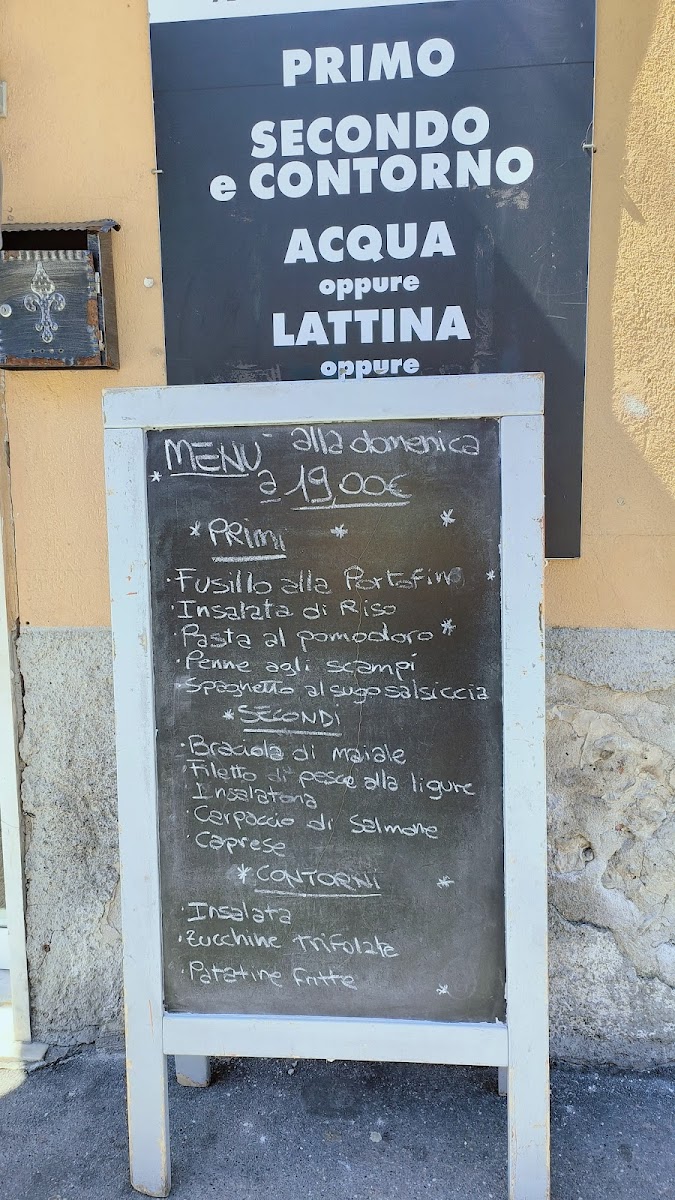 PRIMO
SECONDO
e CONTORNO
ACQUA
oppure
LATTINA
oppure
MENU alla domenica
a 19,00€
* PRIMI * *
· Fusillo alla Portofino *
· Insalata di Riso
· Pasta al pomodoro *
· Penne agli scampi
· Spaghetto al sugo salsiccia
* SECONDI
· Braciola di maiale
· Filetto di pesce alla ligure
Insalatona
· Carpaccio di Salmone
· Caprese
* CONTORNI *
· Insalata
· Zucchine Trifolate
· Patatine Fritte
*